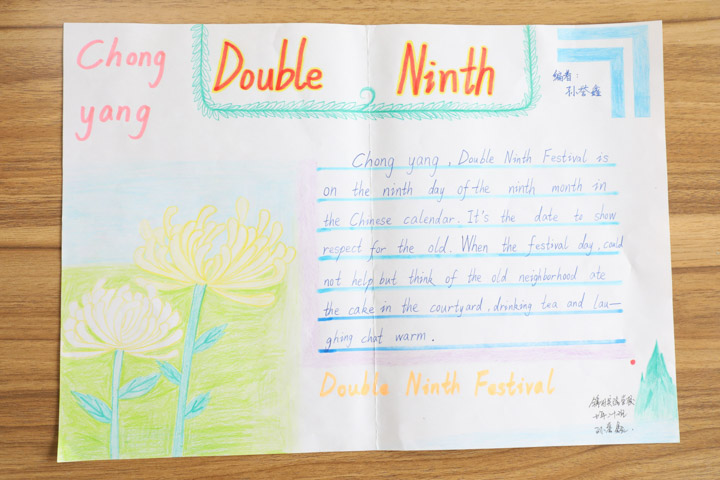 Chong
yang
Double Ninth
编者：
Chong yang , Double Ninth Festival is
on the ninth day of the ninth month in
the Chinese calendar. It's the date to show
respect for the old. When the festival day, could
not help but think of the old neighborhood ate
the cake in the courtyard, drinking tea and lau—
ghing chat warm.
Double Ninth Festival